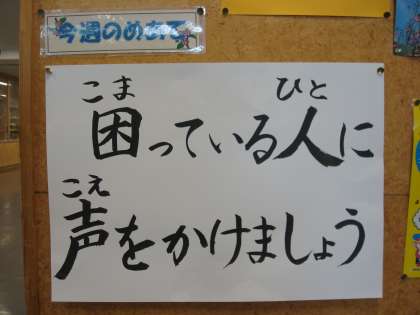 今週のめあて
こま ひと
困っている人に
こえ
声をかけましょう